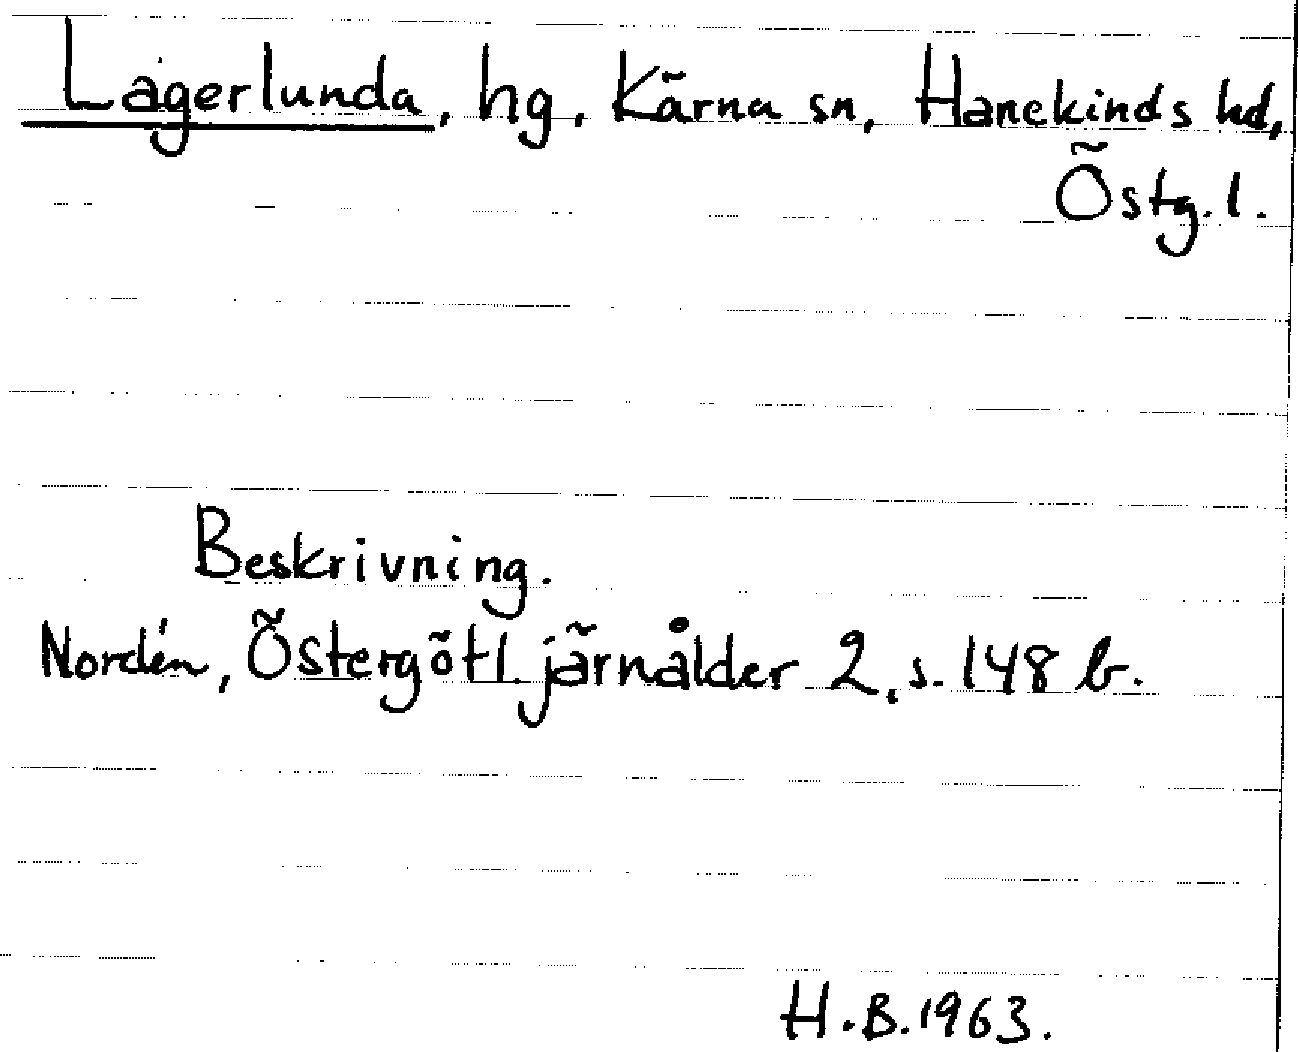 Lagerlunda, hg, Kärna sn, Hanekinds hd,
Östg.l.
Beskrivning.
Nordén, Östergötl. järnålder 2, s. 148 b.
H.B. 1963.